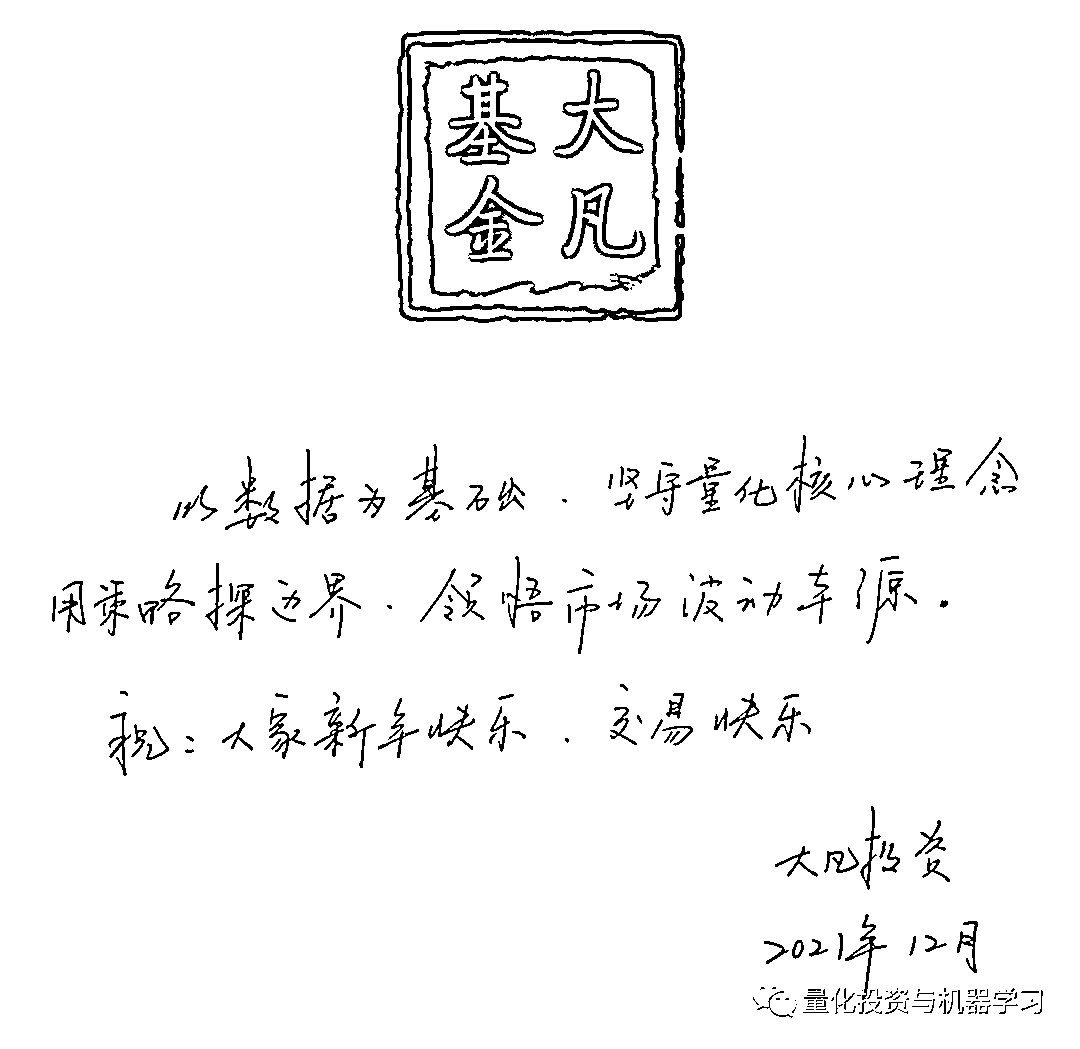 大凡
基金
以数据为基础、坚守量化核心理念
用策略探边界、领悟市场波动本源.
祝：大家新年快乐、交易快乐
大凡投资
2021年12月
量化投资与机器学习